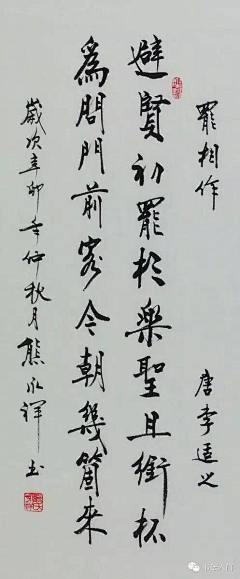 罷相作 唐李適之
避賢初罷相樂聖且銜杯
為問門前客今朝幾箇來
歲次辛卯年仲秋月熊書